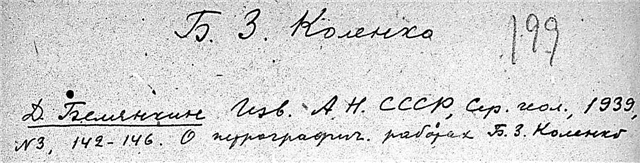 Б. З. Коленко 199
Д. Белянкин Изв. А.Н. СССР, Сер. геол., 1939,
№3, 142-146. О петрографич. работах Б.З. Коленко